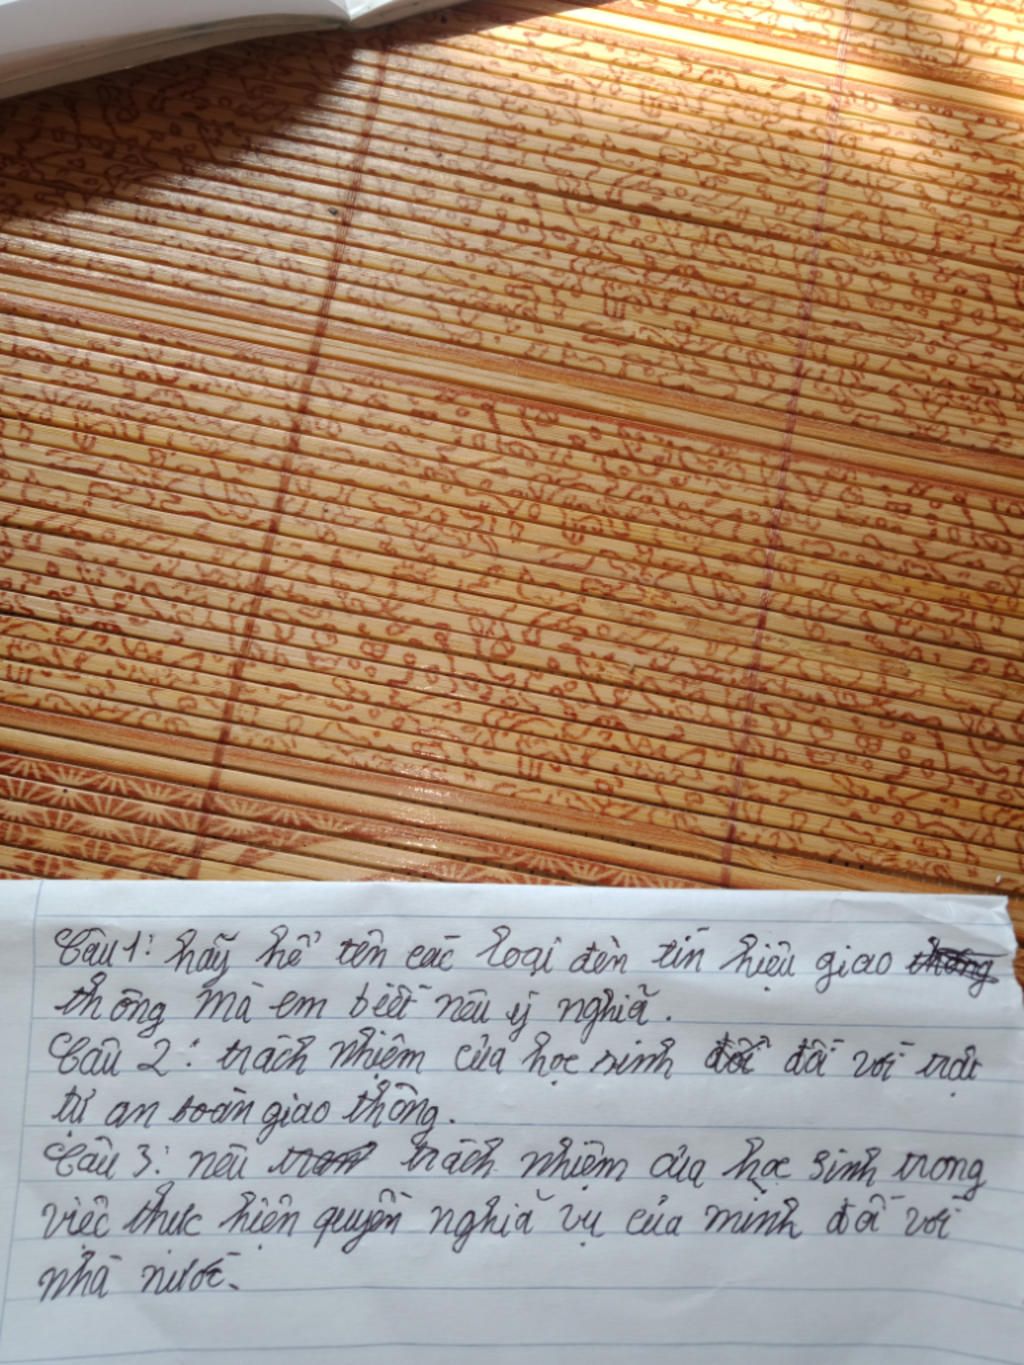 Câu 1: hãy kể tên các loại đèn tín hiệu giao
thông mà em biết nêu ý nghĩa.
Câu 2: trách nhiệm của học sinh đối với trật
tự an toàn giao thông.
Câu 3: nêu trách nhiệm của học sinh trong
việc thực hiện quyền nghĩa vụ của mình đối với
nhà nước.